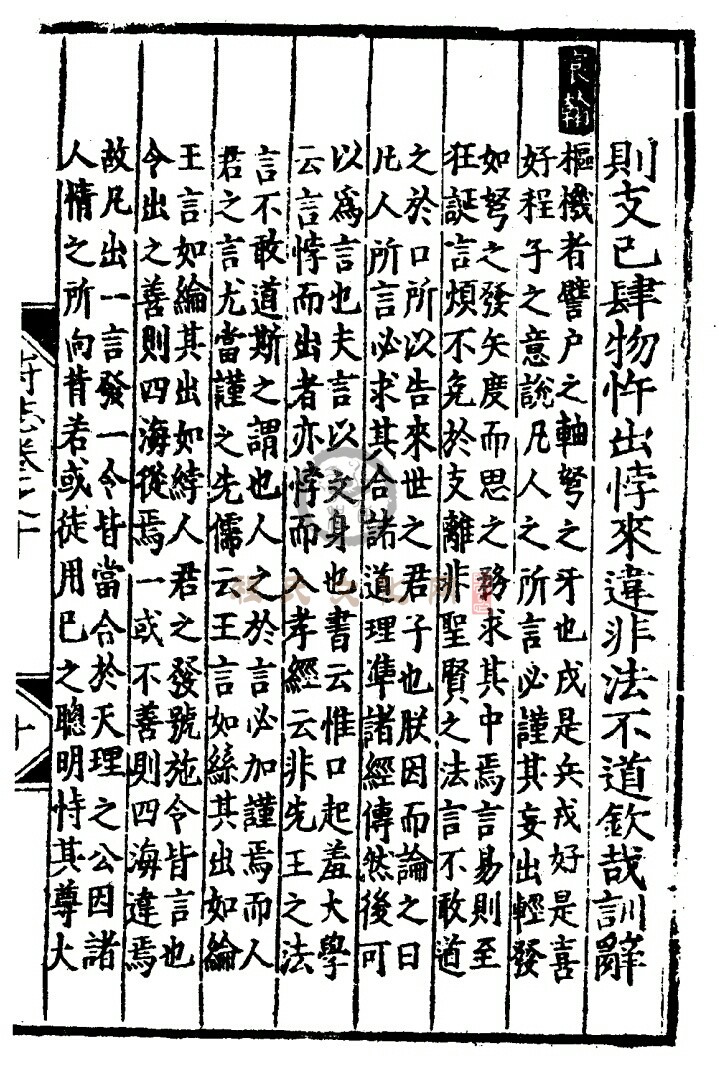 則支己肆物忤出悖來違非法不道欽哉訓辭
宸翰
樞機者譬户之軸弩之牙也戍是兵戎好是喜
好程子之意說凡人之所言必謹其妄出輕發
如弩之發矢度而思之務求其中焉言易則至
狂誕言煩不免於支離非聖賢之法言不敢道
之於口所以告來世之君子也朕因而論之曰
凡人所言必求其合諸道理準諸經傳然後可
以爲言也夫言以文身也書云惟口起羞大學
云言悖而出者亦悖而入孝經云非先王之法
言不敢道斯之謂也人之於言必加謹焉而人
君之言尤當謹之先儒云王言如絲其出如綸
王言如綸其出如綍人君之發號施令皆言也
令出之善則四海從焉一或不善則四海違焉
故凡出一言發一令皆當合於天理之公因諸
人情之所向背若或徒用己之聰明恃其尊大
志卷之十
十